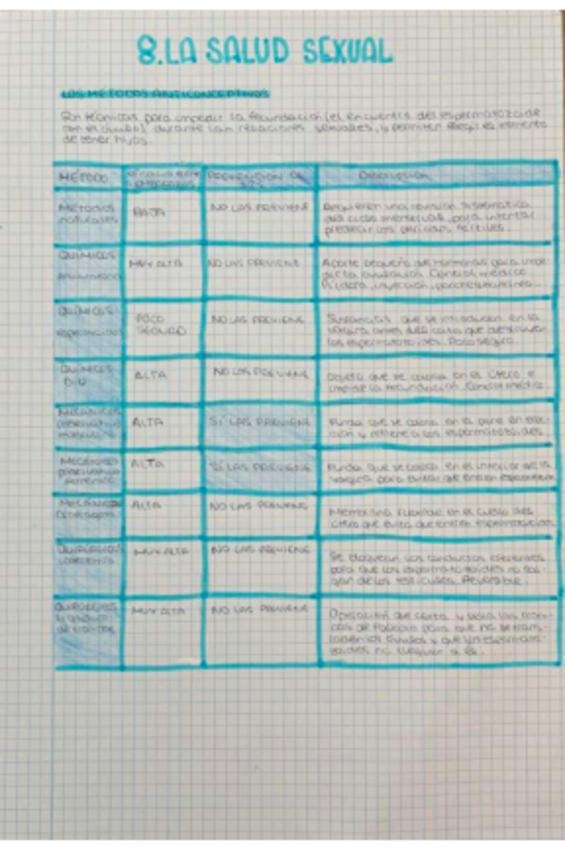 8. LA SALUD SEXUAL
LOS MÉTODOS ANTICONCEPTIVOS
Son técnicas para impedir la fecundación (el encuentro del espermatozoide
con el óvulo) durante las relaciones sexuales, y permiten elegir el momento
de tener hijos.
MÉTODO
PREVENCIÓN DE
DESCRIPCIÓN
MÉTODOS naturales
BAJA
NO LAS PREVIENE
Requieren una revisión sistemática
del ciclo menstrual, para intentar
predecir los periodos fértiles.
QUÍMICOS
MUY ALTA
NO LAS PREVIENE
Aporte pequeño de hormonas para
la ovulación. Control médico
Píldora, inyección, parche
QUÍMICOS espermicidas
POCO SEGURO
NO LAS PREVIENE
Sustancias que se introducen en la
vagina antes del coito que
los espermatozoides. Poco seguro.
QUÍMICOS D.I.U
ALTA
NO LAS PREVIENE
Objeto que se coloca en el útero e
impide la fecundación. Control médico.
MECÁNICOS preservativo masculino
ALTA
SÍ LAS PREVIENE
Funda que se coloca en el pene en
y retiene a los espermatozoides.
MECÁNICOS preservativo femenino
ALTA
SÍ LAS PREVIENE
Funda que se coloca en el interior de la
vagina para evitar que entren
MECÁNICOS Diafragma
ALTA
NO LAS PREVIENE
Membrana flexible en el cuello del
útero que evita que entren
QUIRÚRGICOS
MUY ALTA
NO LAS PREVIENE
Se bloquean los conductos
para que los espermatozoides no
de los testículos. Reversible.
QUIRÚRGICOS
MUY ALTA
NO LAS PREVIENE
Operación que corta y
de Falopio para que no se
los óvulos y que los
no lleguen a él.